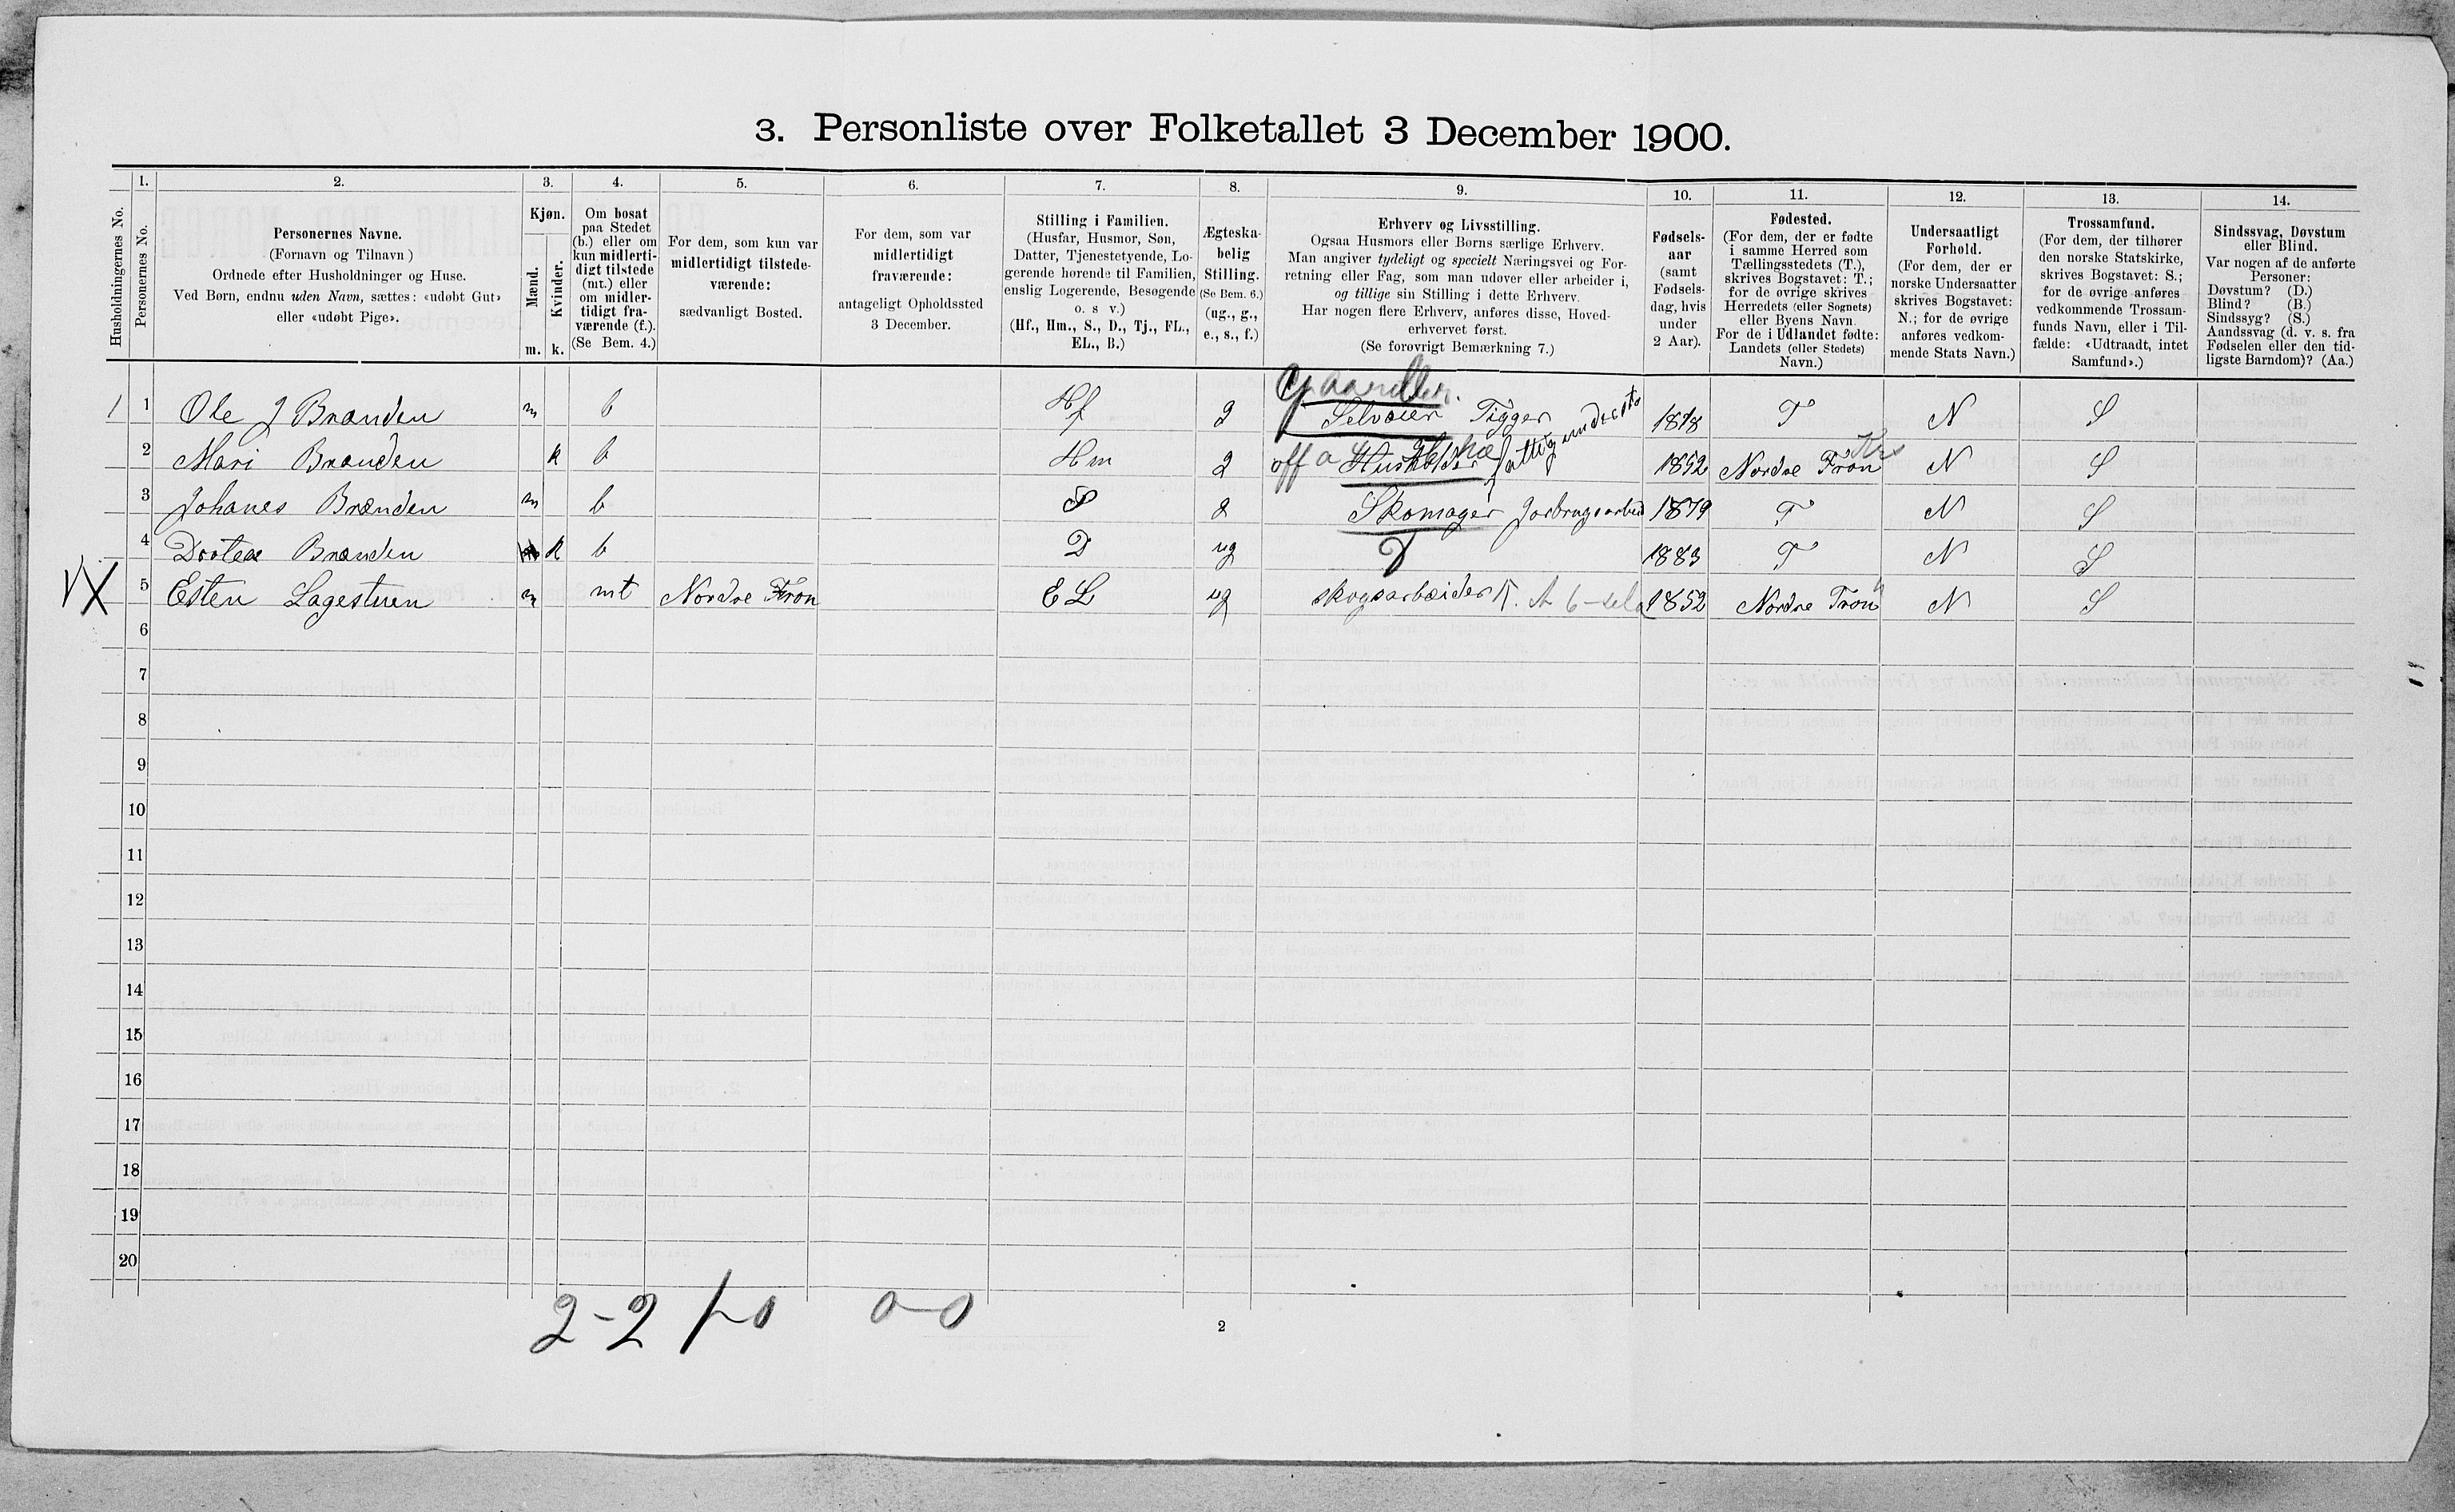 3. Personliste over Folketallet 3 December 1900.
1. 2. 3. 4. 5. 6. 7. 8. 9. 10. 11. 12. 13. 14.
Husholdningernes No.
Personernes No.
Personernes Navne.
(Fornavn og Tilnavn)
Ordnede efter Husholdninger og Huse.
Ved Børn, endnu uden Navn, sættes: «udøbt Gut»
eller «udøbt Pige».
Kjøn.
Mænd.
Kvinder.
m. k.
Om bosat
paa Stedet
(b.) eller om
kun midlerti-
digt tilstede
(mt.) eller
om midler-
tidigt fra-
værende (f.).
(Se Bem. 4.)
For dem, som kun var
midlertidigt tilstede-
værende:
sædvanligt Bosted.
For dem, som var
midlertidigt
fraværende:
antageligt Opholdssted
3 December.
Stilling i Familien.
(Husfar, Husmor, Søn,
Datter, Tjenestetyende, Lo-
gerende hørende til Familien,
enslig Logerende, Besøgende
o. s v.)
(Hf., Hm., S., D., Tj., FL.,
EL., B.)
Ægteska-
belig
Stilling.
(Se Bem. 6.)
(ug., g.,
e., s., f.)
Erhverv og Livsstilling.
Ogsaa Husmors eller Børns særlige Erhverv.
Man angiver tydeligt og specielt Næringsvei og For-
retning eller Fag, som man udøver eller arbeider i,
og tillige sin Stilling i dette Erhverv.
Har nogen flere Erhverv, anføres disse, Hoved-
erhvervet først.
(Se forøvrigt Bemærkning 7.)
Fødsels-
aar
(samt
Fødsels-
dag, hvis
under
2 Aar).
Fødested.
(For dem, der er fødte
i samme Herred som
Tællingsstedets (T.),
skrives Bogstavet: T.;
for de øvrige skrives
Herredets (eller Sognets)
eller Byens Navn.
For de i Udlandet fødte:
Landets (eller Stedets)
Navn.)
Undersaatligt
Forhold.
(For dem, der er
norske Undersaatter
skrives Bogstavet:
N.; for de øvrige
anføres vedkom-
mende Stats Navn.)
Trossamfund.
(For dem, der tilhører
den norske Statskirke,
skrives Bogstavet: S.;
for de øvrige anføres
vedkommende Trossam-
funds Navn, eller i Til-
fælde: «Udtraadt, intet
Samfund».)
Sindssvag, Døvstum
eller Blind.
Var nogen af de anførte
Personer:
Døvstum? (D.)
Blind? (B.)
Sindssyg? (S.)
Aandssvag (d. v. s. fra
Fødselen eller den tid-
ligste Barndom)? (Aa.)
1 1 Ole J Brænden m b Hf g Selveier Tigger 1818 T N S
2 Mari Brænden k b Hm g off a fattigunderst 1852 Nordre Fron N S
3 Johanes Brænden m b S g Skomager Jorbrugsarbeid 1879 T N S
4 Dortea Brænden k b D ug 1883 T N S
5 Esten Lagestuen m mt Nordre Fron EL ug skogsarbeider 1852 Nordre Fron N S
6
7
8
9
10
11
12
13
14
15
16
17
18
19
20
2-2 1-0 0-0
2